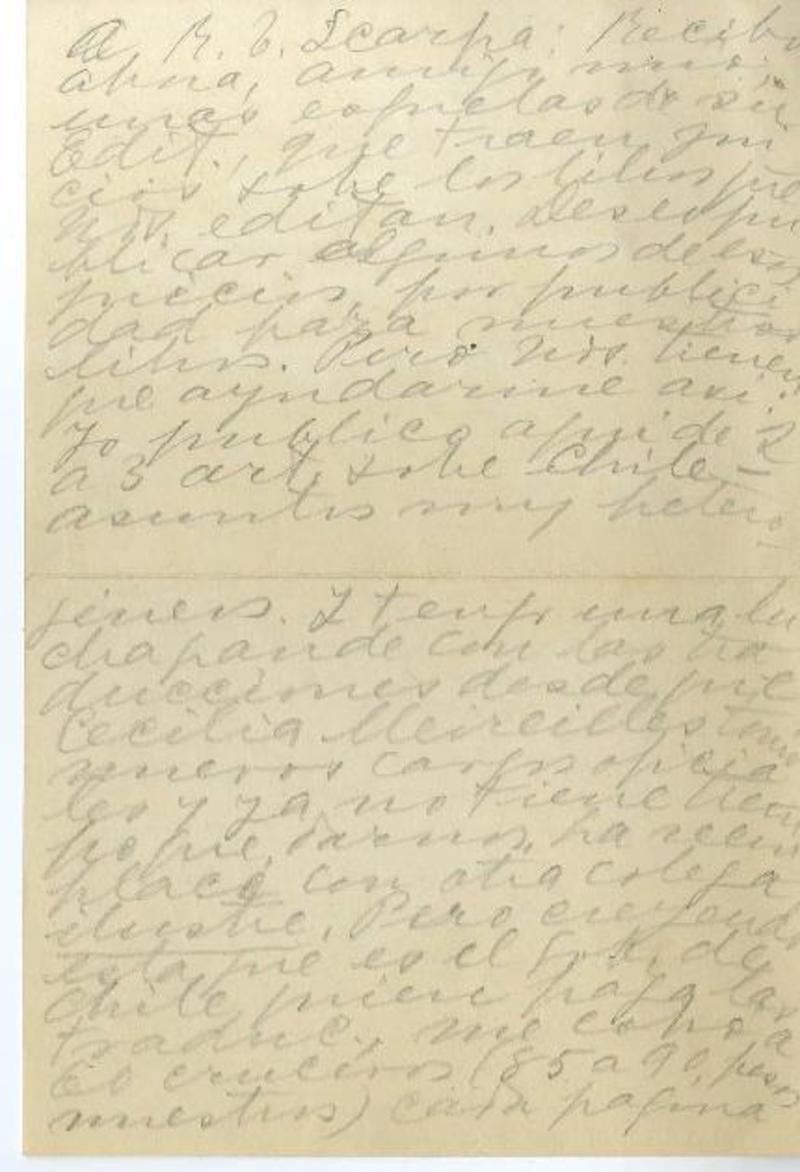 A R. E. Scarpa: Recibo
ahora, amigo mío,
unas esquelas de su
Edit., que traen jui
cios sobe los libros que
Uds. editan. Deseo pu
blicar algunos de esos
juicios, por publici
dad para nuestros
libros. Pero Uds. tienen
que ayudarme así:
Yo publico aquí de 2
a 3 art. sobe Chile –
asuntos muy hetero
jéneos. I tengo una lu
cha grande con las tra
ducciones desde que
Cecilia Meireilles tomó
nuevos cargos oficia
les y ya no tiene tiem
po que darnos. La reem
placé con otra colega
ilustre. Pero creyendo
esta que es el Gob. de
Chile quien paga las
traduc., me cobra a
cruceiros (85 a 90 pesos
nuestros) cada página